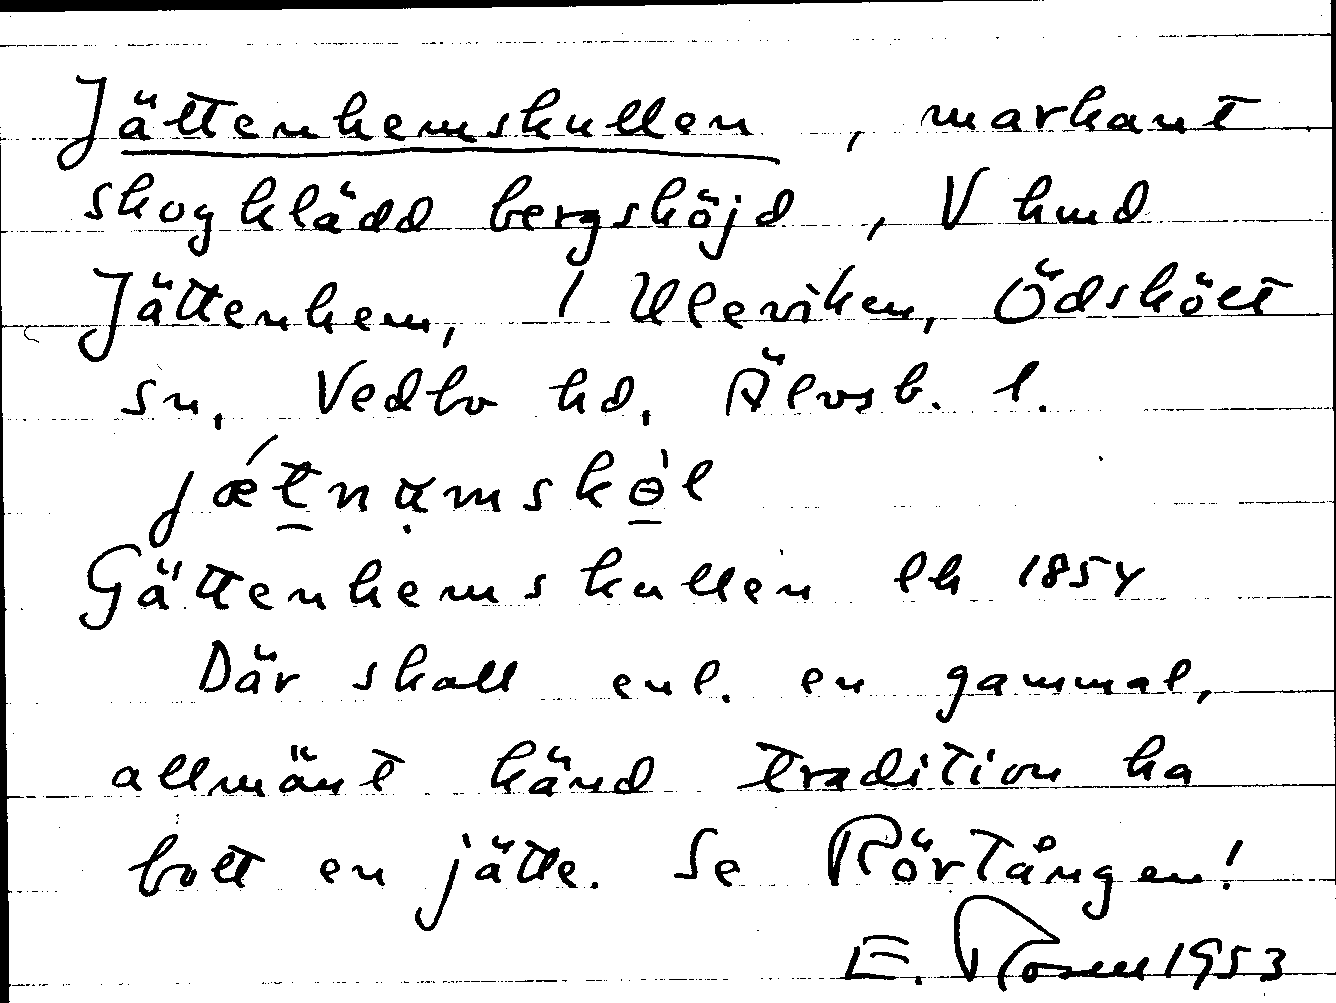 Jättenhemskullen, markant
skogklädd bergshöjd, V hmd
Jättenhem, 1 Uleviken, Ödskölt
sn, Vedbo hd, Älvsb. l.
Gättenhemskullen lh 1854
Där skall enl. en gammal,
allmänt känd tradition ha
bott en jätte. Se Rörtången!
E. Rosell 1953